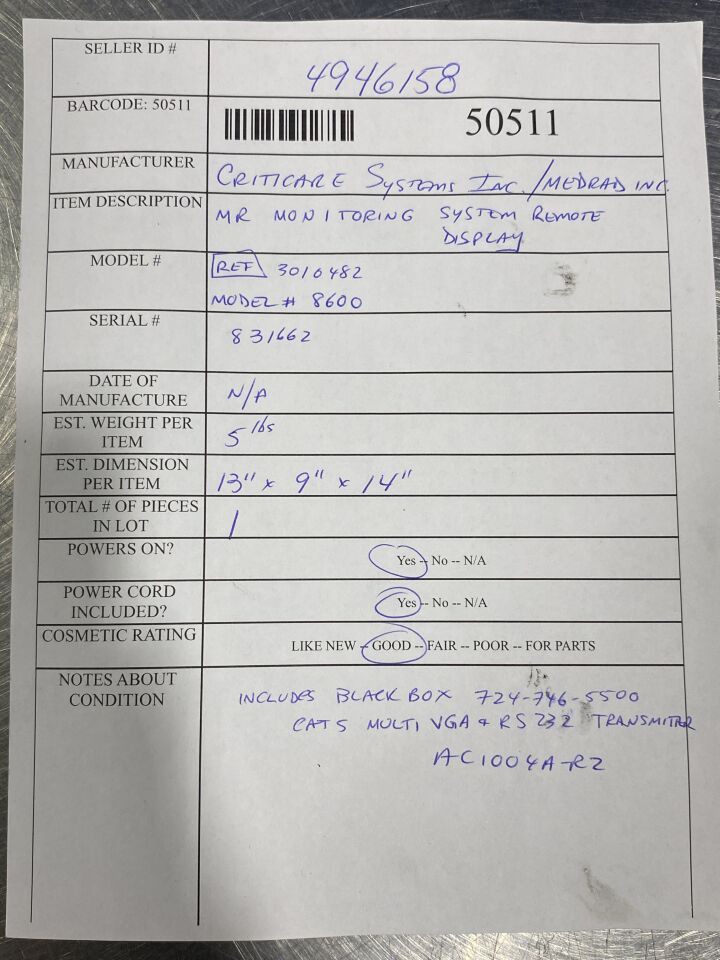 SELLER ID #
4946158
BARCODE: 50511
50511
MANUFACTURER
CRITICARE SYSTEMS INC. / MEDRAD INC.
ITEM DESCRIPTION
MR MONITORING SYSTEM REMOTE
DISPLAY
MODEL #
REF 3010482
MODEL # 8600
SERIAL #
831662
DATE OF
MANUFACTURE
N/A
EST. WEIGHT PER
ITEM
5 lbs
EST. DIMENSION
PER ITEM
13" x 9" x 14"
TOTAL # OF PIECES
IN LOT
1
POWERS ON?
Yes -- No -- N/A
POWER CORD
INCLUDED?
Yes -- No -- N/A
COSMETIC RATING
LIKE NEW -- GOOD -- FAIR -- POOR -- FOR PARTS
NOTES ABOUT
CONDITION
INCLUDES BLACK BOX 724-746-5500
CAT 5 MULTI VGA & RS 232 TRANSMITTER
AC1004A-R2